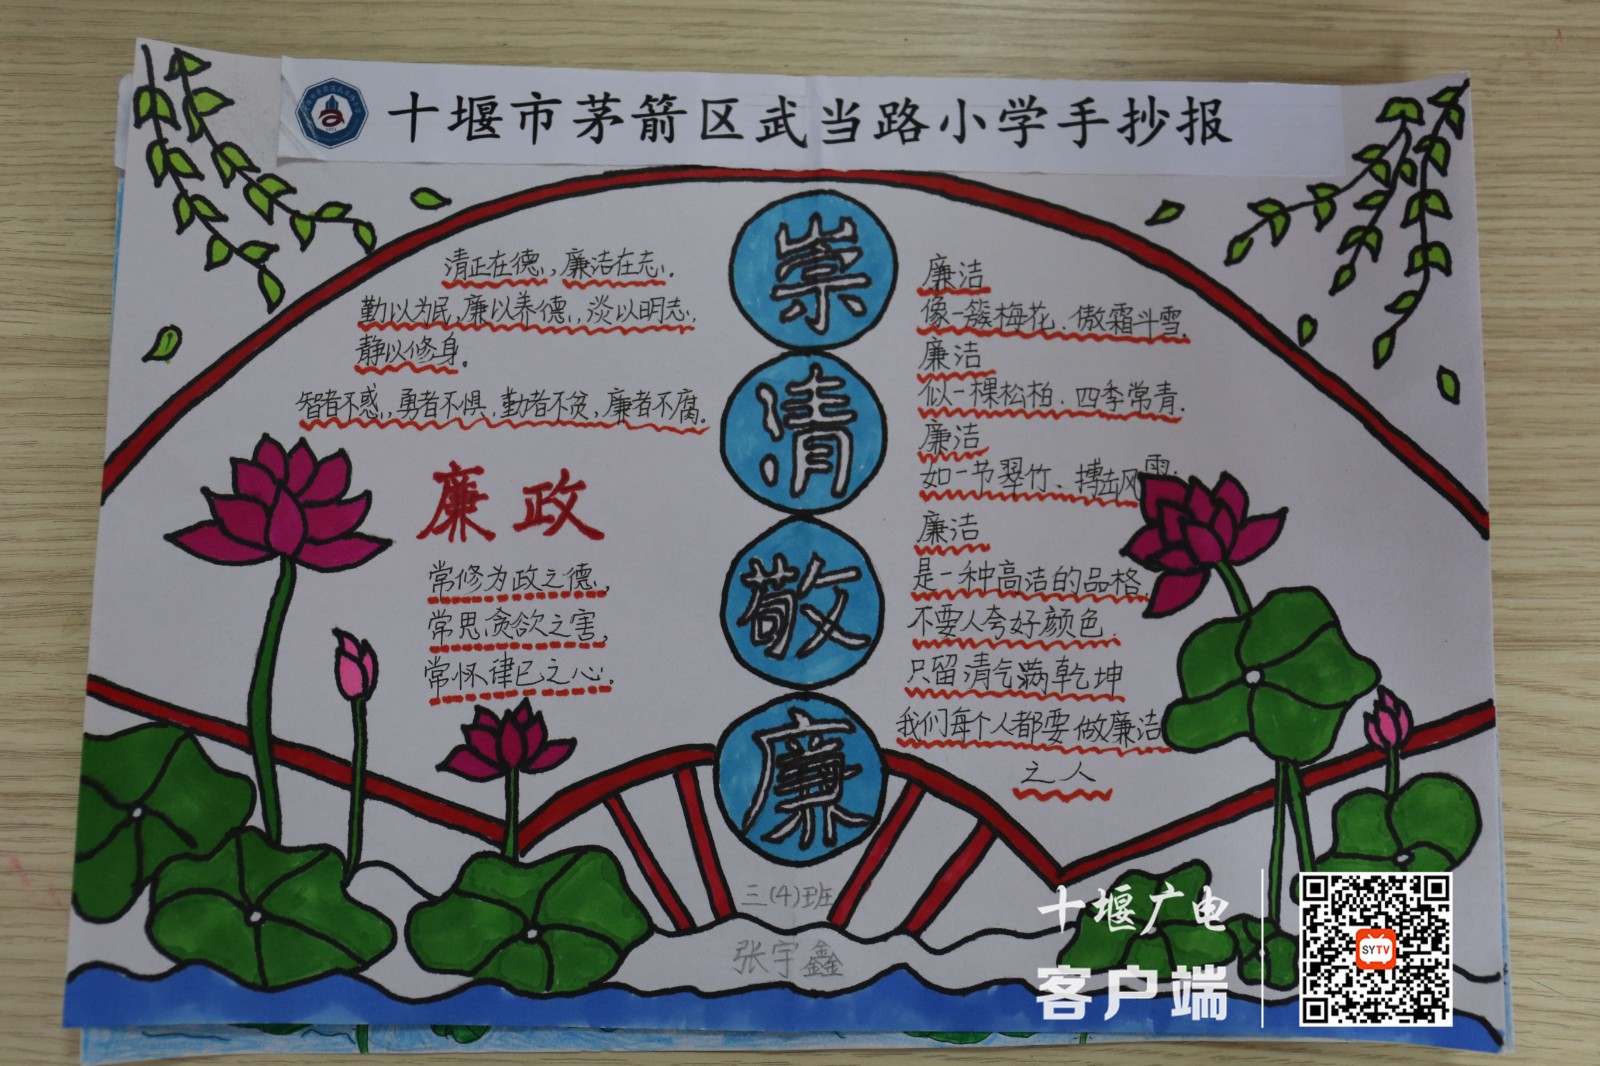 十堰市茅箭区武当路小学手抄报
崇清敬廉
清正在德，廉洁在志。
勤以为民，廉以养德，淡以明志，
静以修身。
智者不惑，勇者不惧，勤者不贫，廉者不腐。
廉政
常修为政之德，
常思贪欲之害，
常怀律己之心。
廉洁
像一簇梅花、傲霜斗雪。
廉洁
似一棵松柏、四季常青。
廉洁
如一节翠竹、搏击风雨。
廉洁
是一种高洁的品格，
不要人夸好颜色，
只留清气满乾坤
我们每个人都要做廉洁
之人
三(4)班
张宇鑫
十堰广电
客户端
SYTV